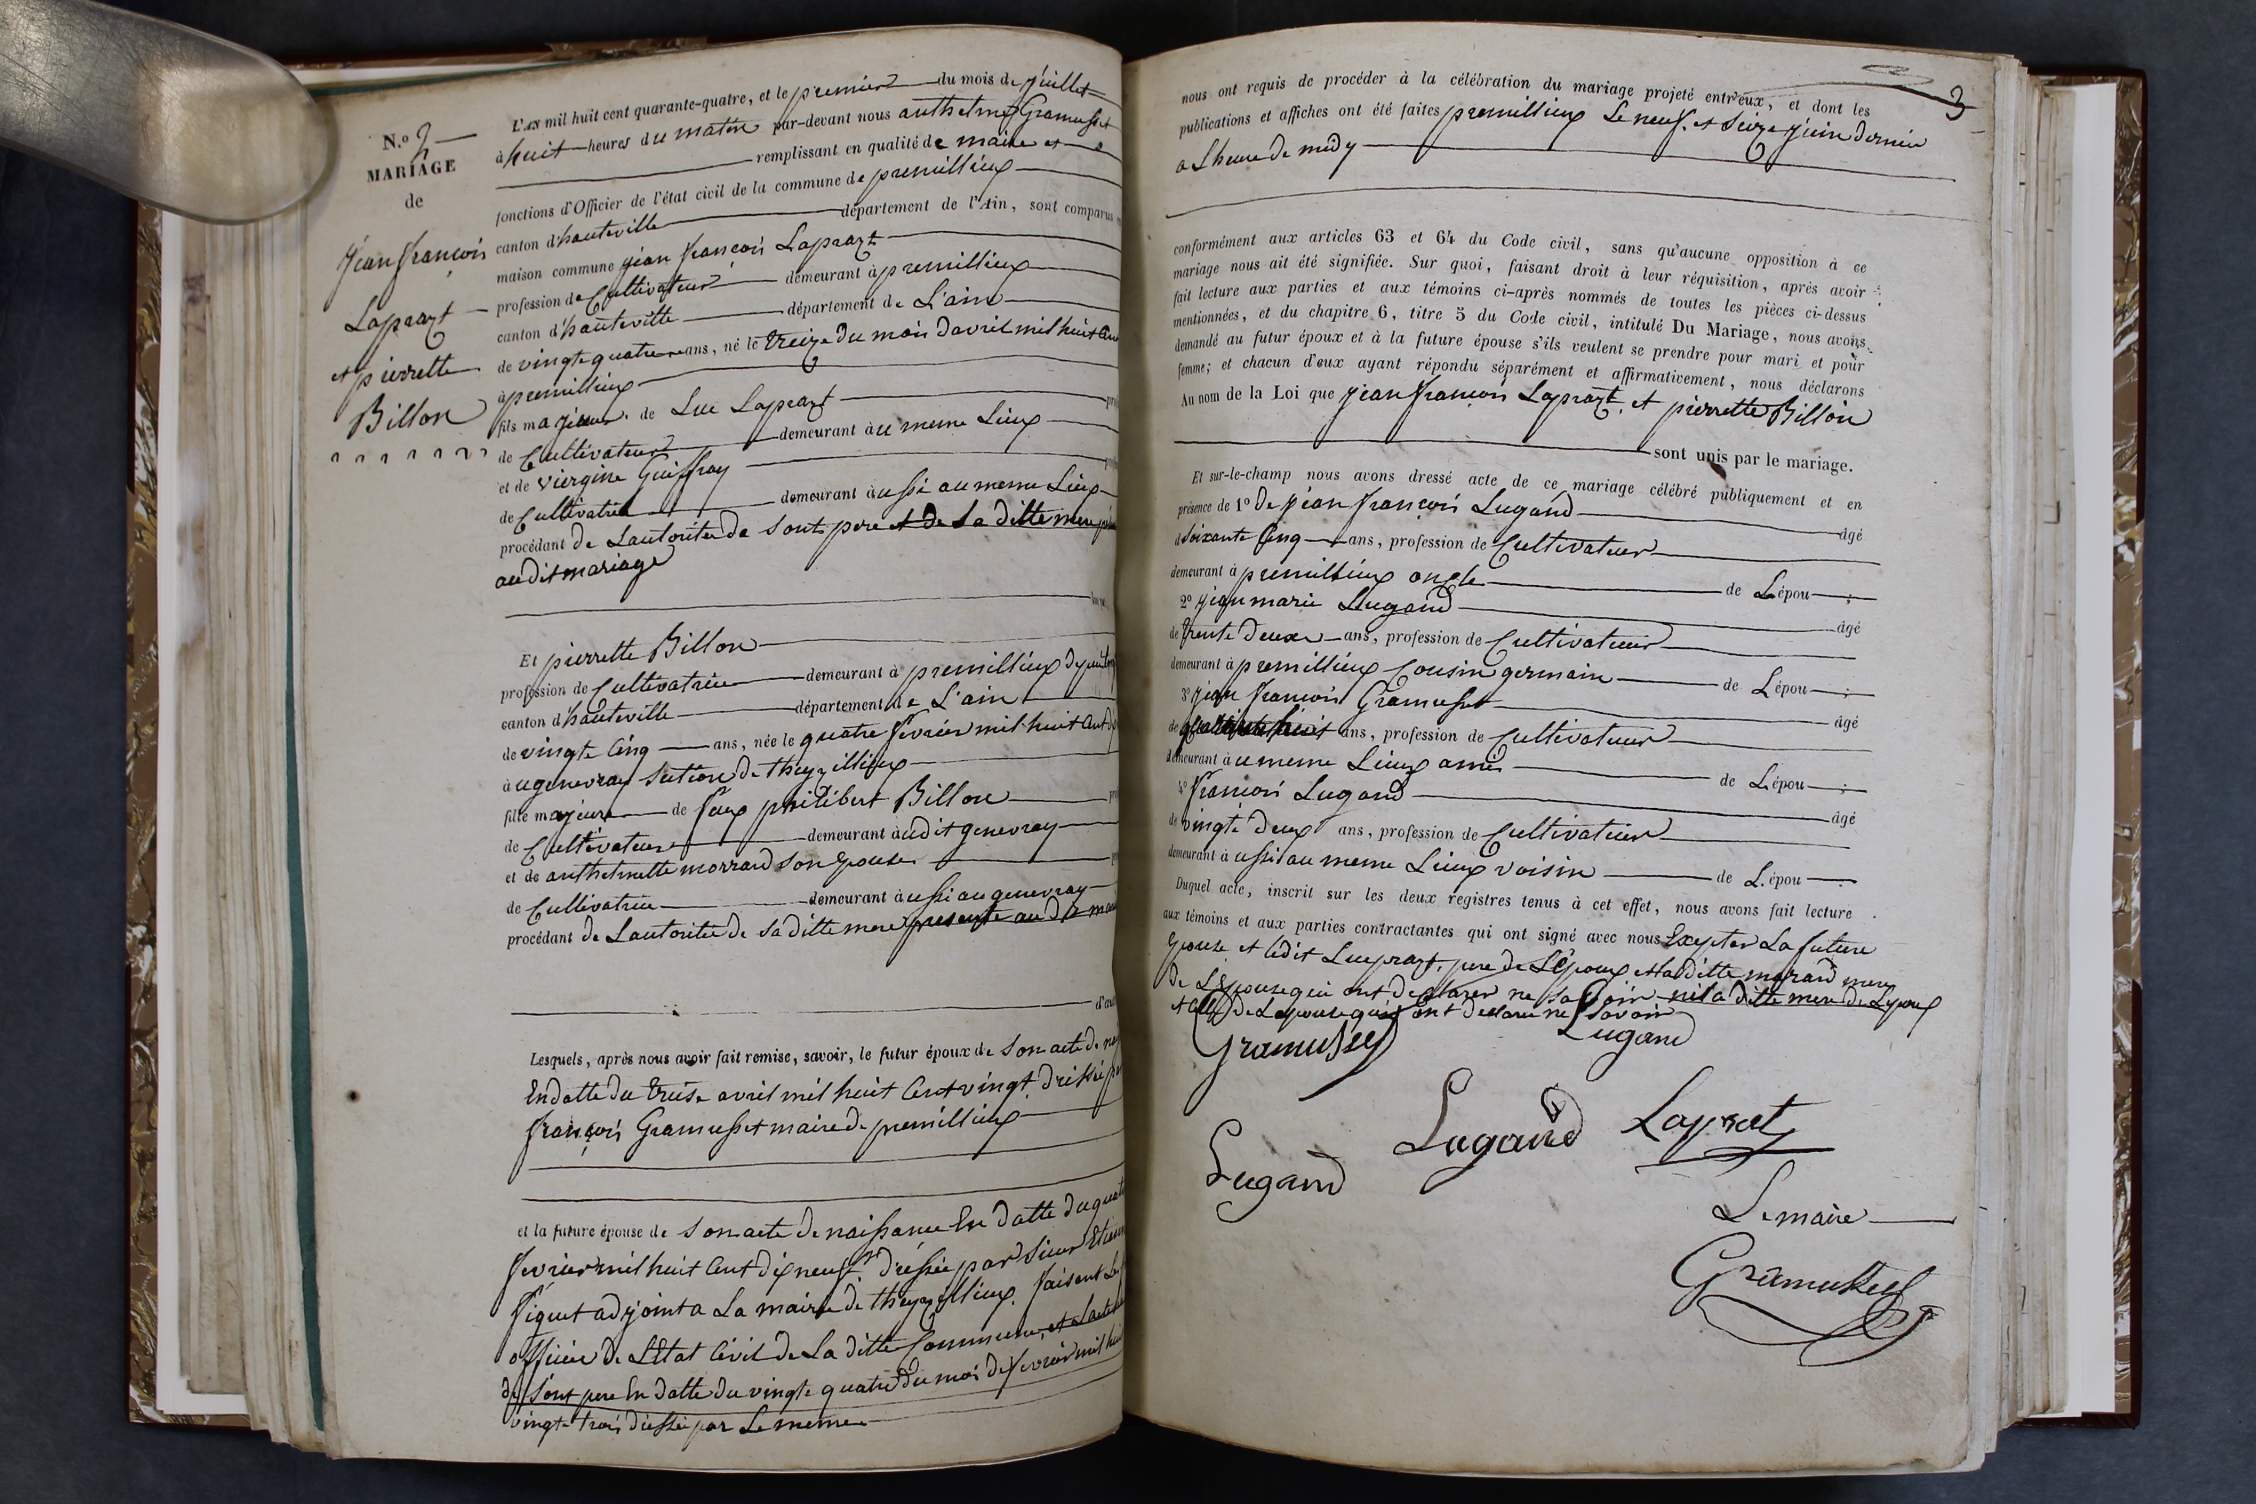 N.o 3
MARIAGE
de
jean françois
Laprazt
et pierrette
Billon
L'AN mil huit cent quarante-quatre, et le premier du mois de juillet
à huit heures du matin par-devant nous anthelme Gramusset
remplissant en qualité de maire et
fonctions d'Officier de l'état civil de la commune de premillieux
canton d'hauteville département de l'Ain, sont comparus
maison commune jean françois Laprazt
profession de Cultivateur demeurant à premillieux
canton d'hauteville département de L'ain
de vingt quatre ans, né le treize du mois davril mil huit Cent
à premillieux
fils majeur de Luc Laprazt
de Cultivateur demeurant àu meme Lieux
et de viergine Guiffray
de Cultivatrice demeurant àussi au meme Lieux
procédant de Lautoritée de sont pere et de La ditte mere
au dit mariage
Et pierrette Billon
profession de Cultivatrice demeurant à premillieux
canton d'hauteville département de L'ain
de vingt Cinq ans, née le quatre fevrier mil huit Cent
àu genevray section de theyzillieux
fille majeure de feux philibert Billon
de Cultivateur demeurant àudit genevray
et de anthelmette morrard son epouse
de Cultivatrice demeurant àussi au genevray
procédant de Lautoritée de sa ditte mere presente au dit
Lesquels, après nous avoir fait remise, savoir, le futur époux de son acte de
En datte du treise avril mil huit Cent vingt dréssée par
françois Gramusset maire de premillieux
et la future épouse de son acte de naissance En datte du quatre
fevrier mil huit Cent dix neuf dréssée par sieur Etienne
figuet adjoint a La mairie de theyzillieux faisant
officier de L'Etat Civil de La ditte Commune, et
de sont pere En datte du vingt quatre du mois de fevrier mil huit
vingt trois dressée par Le meme
3
nous ont requis de procéder à la célébration du mariage projeté entr'eux, et dont les
publications et affiches ont été faites premillieux Le neuf et Seize juin dernier
a Lheure de midy
conformément aux articles 63 et 64 du Code civil, sans qu'aucune opposition à ce
mariage nous ait été signifiée. Sur quoi, faisant droit à leur réquisition, après avoir
fait lecture aux parties et aux témoins ci-après nommés de toutes les pièces ci-dessus
mentionnées, et du chapitre 6, titre 5 du Code civil, intitulé Du Mariage, nous avons
demandé au futur époux et à la future épouse s'ils veulent se prendre pour mari et pour
femme; et chacun d'eux ayant répondu séparément et affirmativement, nous déclarons
Au nom de la Loi que jean françois Laprazt et pierrette Billon
sont unis par le mariage.
Et sur-le-champ nous avons dressé acte de ce mariage célébré publiquement et en
présence de 1o De jean françois Lugand âgé
d soixante Cinq ans, profession de Cultivateur
demeurant à premillieux oncle de L épou ;
2o jean marie Lugand âgé
de trente deux ans, profession de Cultivateur
demeurant à premillieux Cousin germain de L'épou ;
3o jean françois Gramusset âgé
de ans, profession de Cultivateur
demeurant àu meme Lieux amis de L'épou ;
4o françois Lugand âgé
de vingt deux ans, profession de Cultivateur
demeurant à ussi au meme Lieux voisin de L.épou .
Duquel acte, inscrit sur les deux registres tenus à cet effet, nous avons fait lecture
aux témoins et aux parties contractantes qui ont signé avec nous Excpter La future
epouse et Ledit Luc prazt, pere de L'époux et la ditte morard mere
De L'Epouse qui ont declarer ne savoir ni La ditte mere de L'epoux
et celle de Lepouse qui ont declaré ne savoir
Gramusset
Lugand
Lugand
Laprat
Lugand
Le maire
Gramusset